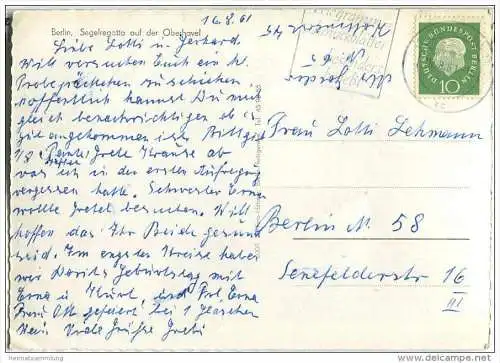 16.8.61
Berlin, Segelregatta auf der Oberhavel
Liebe Lotti u. Gerhard.
Will versuchen Euch ein kl.
Probepäckchen zu schicken
hoffentlich kannst Du mir
gleich benachrichtigen ob
angekommen ist.
1/2 Grete Krause ab
was ich in der ersten Aufregung
vergessen hatte. Schwester Erna
wollte Gretel besuchen. Will
hoffen das Ihr Beide gesund
seid. Im engsten Kreise haben
wir Doris Geburtstag mit
Erna u. Kurt, und Frl. Erna
Frau Ott gefeiert bei 1 Flaschen
Wein Viele Grüße Greti
DEUTSCHE BUNDESPOST BERLIN
10
Frau Lotti Lehmann
Berlin N. 58
Senefelderstr. 16
III